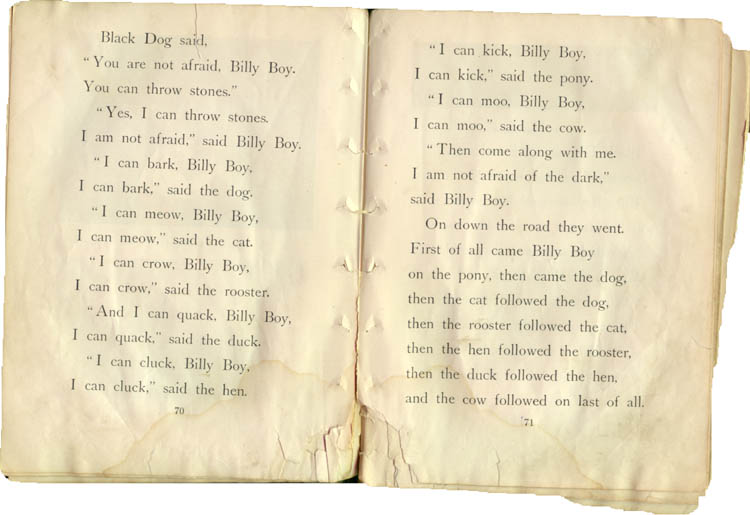 Black Dog said,
"You are not afraid, Billy Boy.
You can throw stones."
"Yes, I can throw stones.
I am not afraid," said Billy Boy.
"I can bark, Billy Boy,
I can bark," said the dog.
"I can meow, Billy Boy,
I can meow," said the cat.
"I can crow, Billy Boy,
I can crow," said the rooster.
"And I can quack, Billy Boy,
I can quack," said the duck.
"I can cluck, Billy Boy,
I can cluck," said the hen.
70
"I can kick, Billy Boy,
I can kick," said the pony.
"I can moo, Billy Boy,
I can moo," said the cow.
"Then come along with me.
I am not afraid of the dark,"
said Billy Boy.
On down the road they went.
First of all came Billy Boy
on the pony, then came the dog,
then the cat followed the dog,
then the rooster followed the cat,
then the hen followed the rooster,
then the duck followed the hen,
and the cow followed on last of all.
71